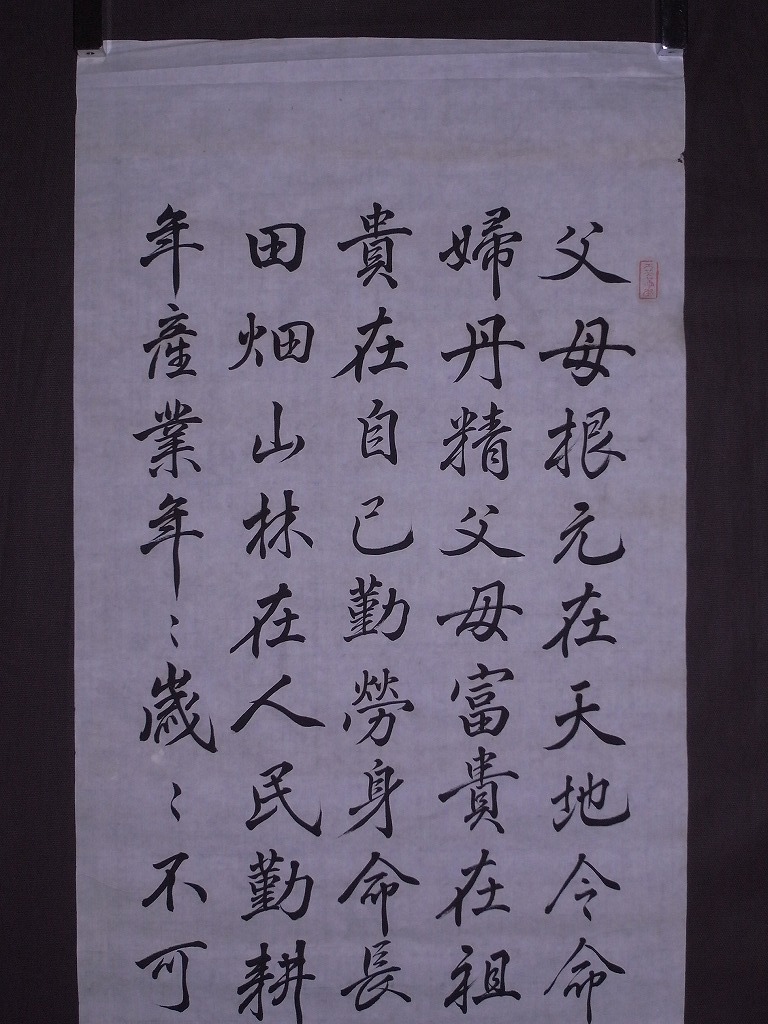 父母根元在天地令命
婦丹精父母富貴在祖
貴在自己勤勞身命長
田畑山林在人民勤耕
年産業年々歳々不可